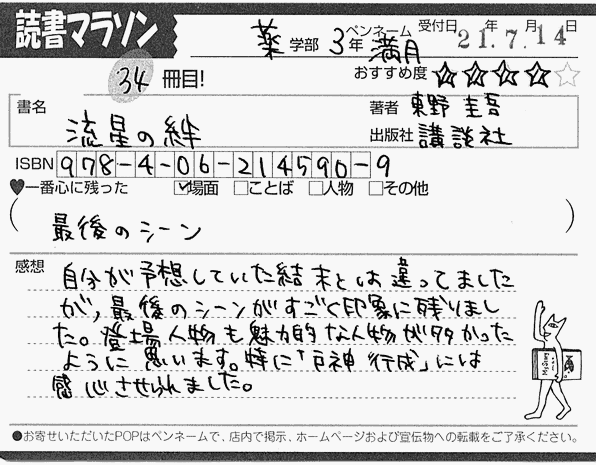 読書マラソン
薬 学部 3年 ペンネーム 満月 受付日 21年 7月 14日
34 冊目! おすすめ度 ☆☆☆☆☆
書名 流星の絆 著者 東野 圭吾
出版社 講談社
ISBN 978-4-06-214590-9
♥一番心に残った ☑場面 □ことば □人物 □その他
(最後のシーン)
感想 自分が予想していた結末とは違ってました
が、最後のシーンがすごく印象に残りまし
た。登場人物も魅力的な人物が多かった
ように思います。特に「戸神 行成」には
感心させられました。
●お寄せいただいたPOPはペンネームで、店内で掲示、ホームページおよび宣伝物への転載をご了承ください。